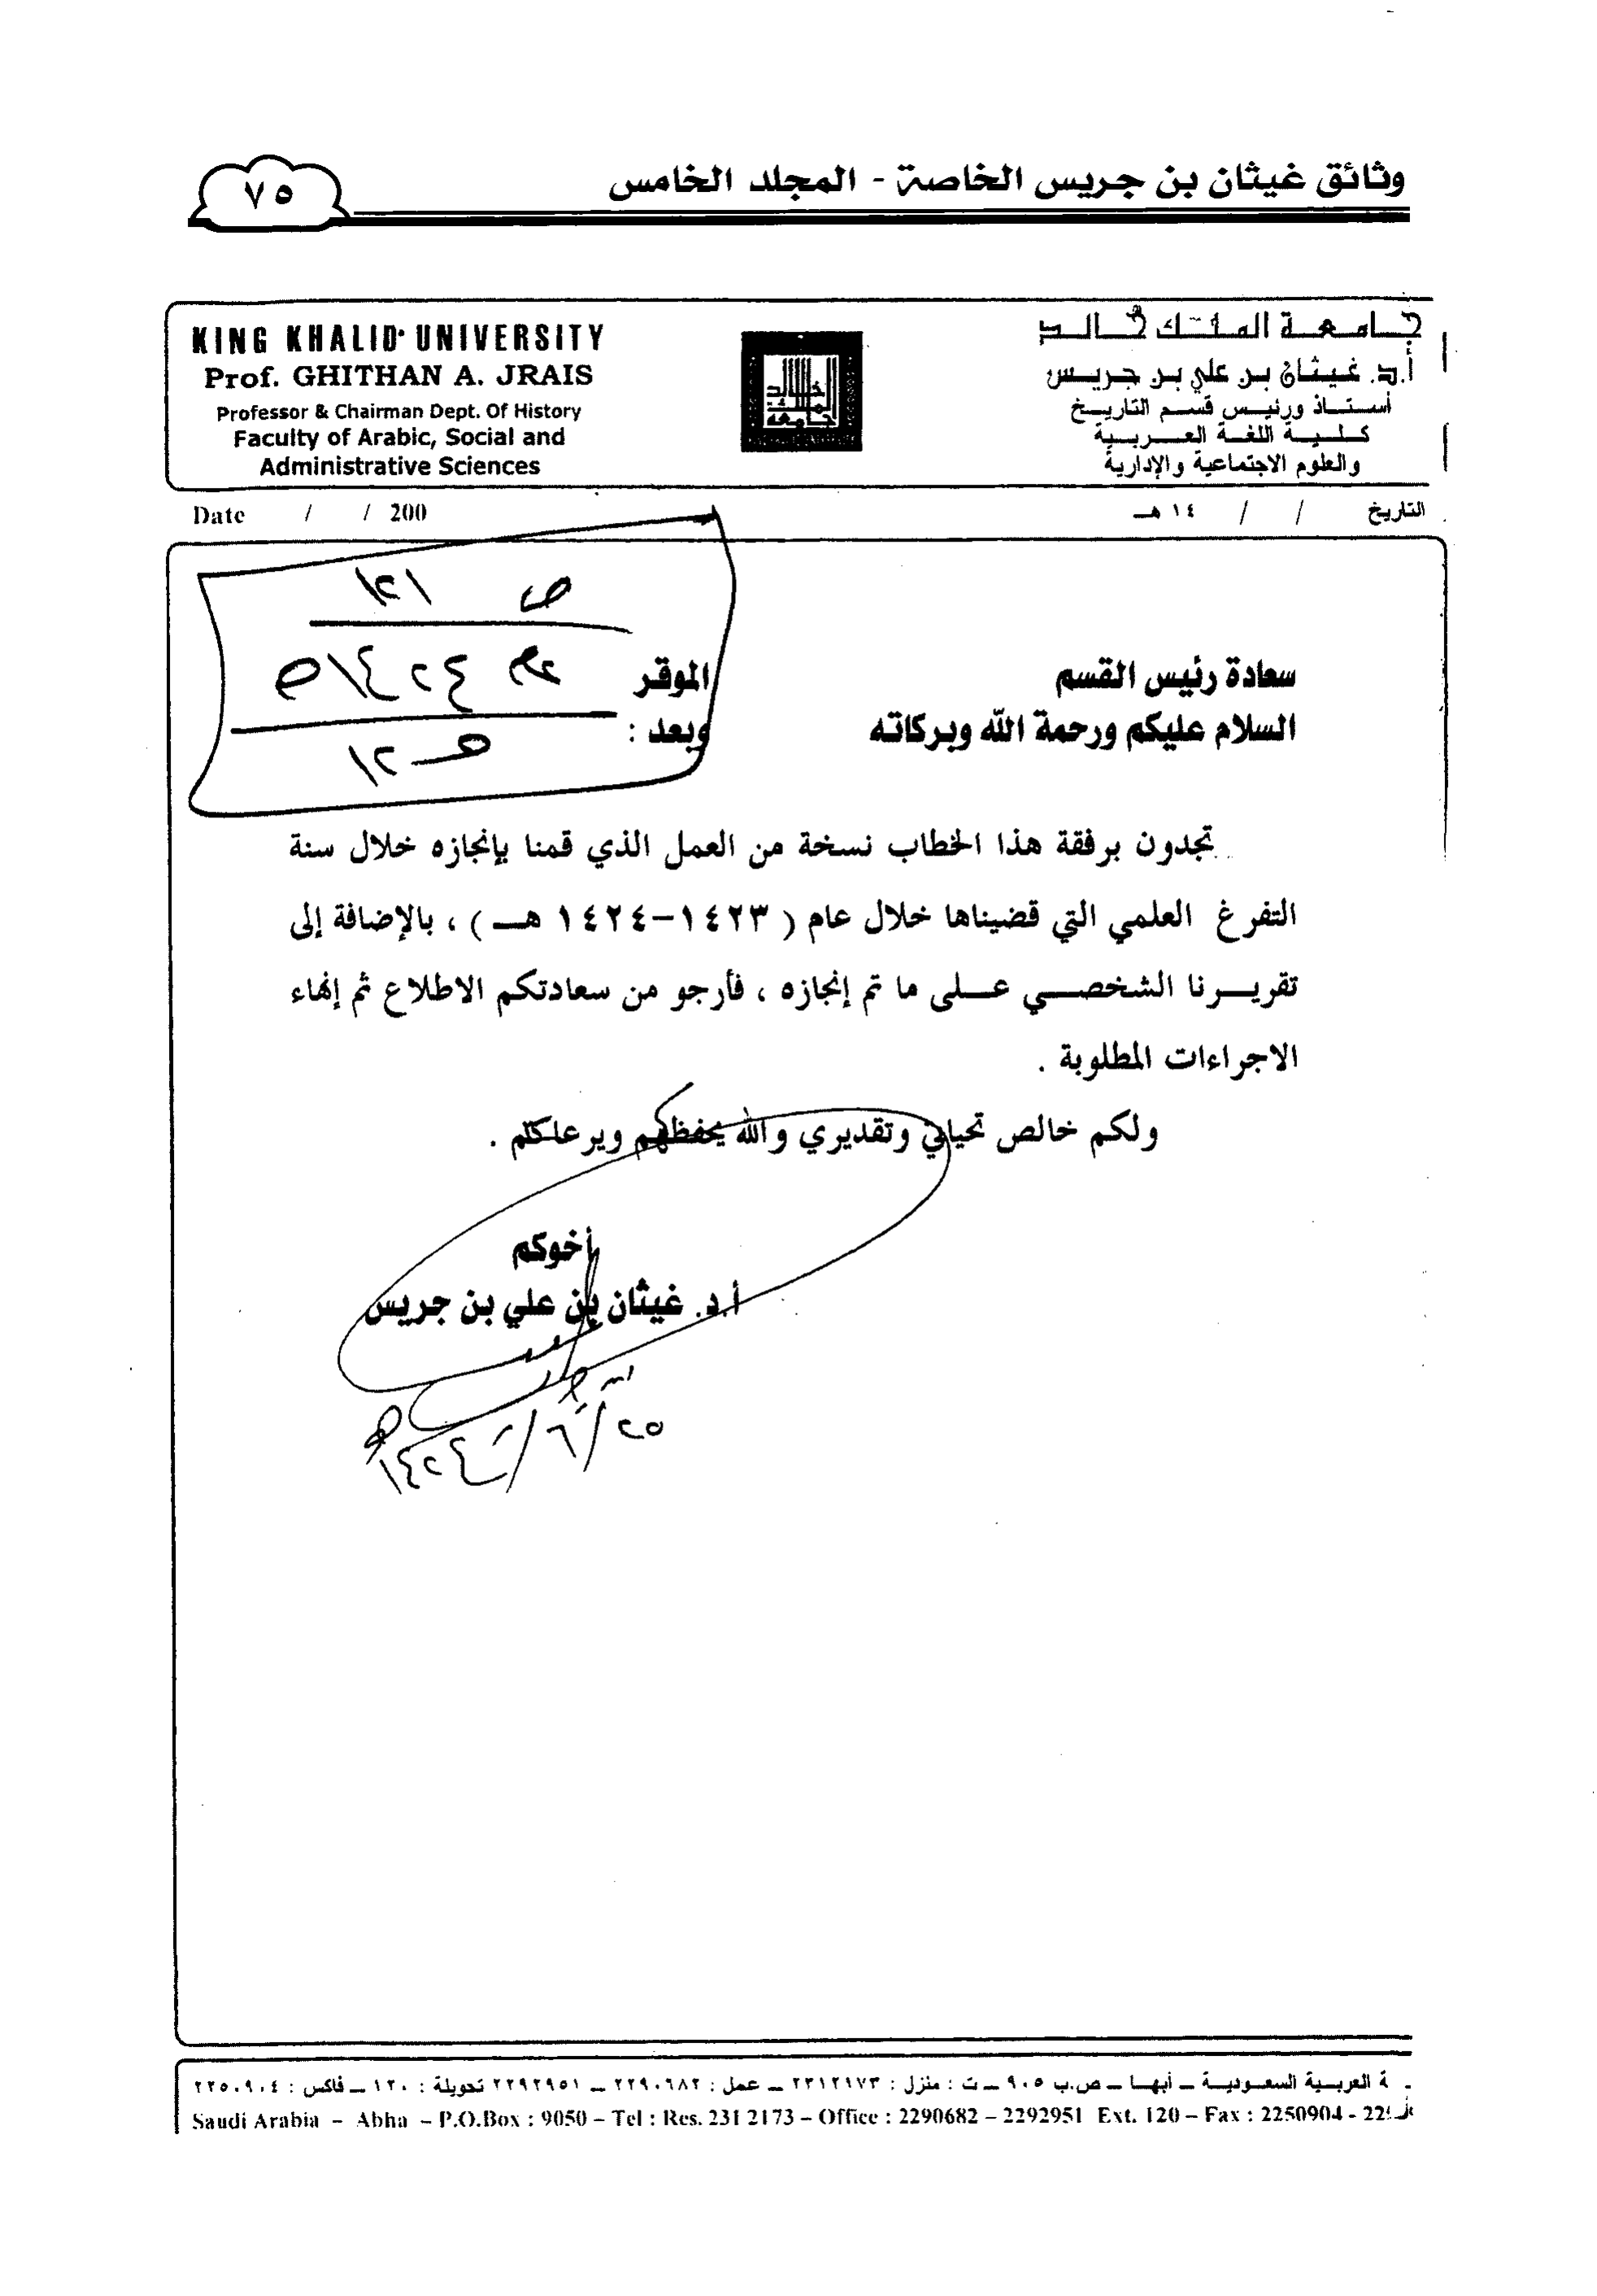 وثائق غيثان بن جريس الخاصة - المجلد الخامس
٧٥
KING KHALID UNIVERSITY
Prof. GHITHAN A. JRAIS
Professor & Chairman Dept. Of History
Faculty of Arabic, Social and
Administrative Sciences
جامعة الملك خالد
أ.د. غيثان بن علي بن جريس
أستاذ ورئيس قسم التاريخ
كلية اللغة العربية
والعلوم الاجتماعية والإدارية
Date / / 200
التاريخ / / ١٤ هـ
ص ١٢١
سعادة رئيس القسم الموقر
السلام عليكم ورحمة الله وبركاته وبعد :
تجدون برفقة هذا الخطاب نسخة من العمل الذي قمنا بإنجازه خلال سنة
التفرغ العلمي التي قضيناها خلال عام ( ١٤٢٣-١٤٢٤ هـ ) ، بالإضافة إلى
تقريرنا الشخصي على ما تم إنجازه ، فأرجو من سعادتكم الاطلاع ثم إنهاء
الاجراءات المطلوبة .
ولكم خالص تحياتي وتقديري والله يحفظكم ويرعاكم .
أخوكم
أ.د. غيثان بن علي بن جريس
٢٥/٦/١٤٢٤هـ
ة العربية السعودية – أبها – ص.ب ٩٠٥ – ت : منزل : ٢٣١٢١٧٣ – عمل : ٢٢٩٠٦٨٢ – ٢٢٩٢٩٥١ تحويلة : ١٢٠ – فاكس : ٢٢٥٠٩٠٤
Saudi Arabia – Abha – P.O.Box : 9050 – Tel : Res. 231 2173 – Office : 2290682 – 2292951 Ext. 120 – Fax : 2250904 -